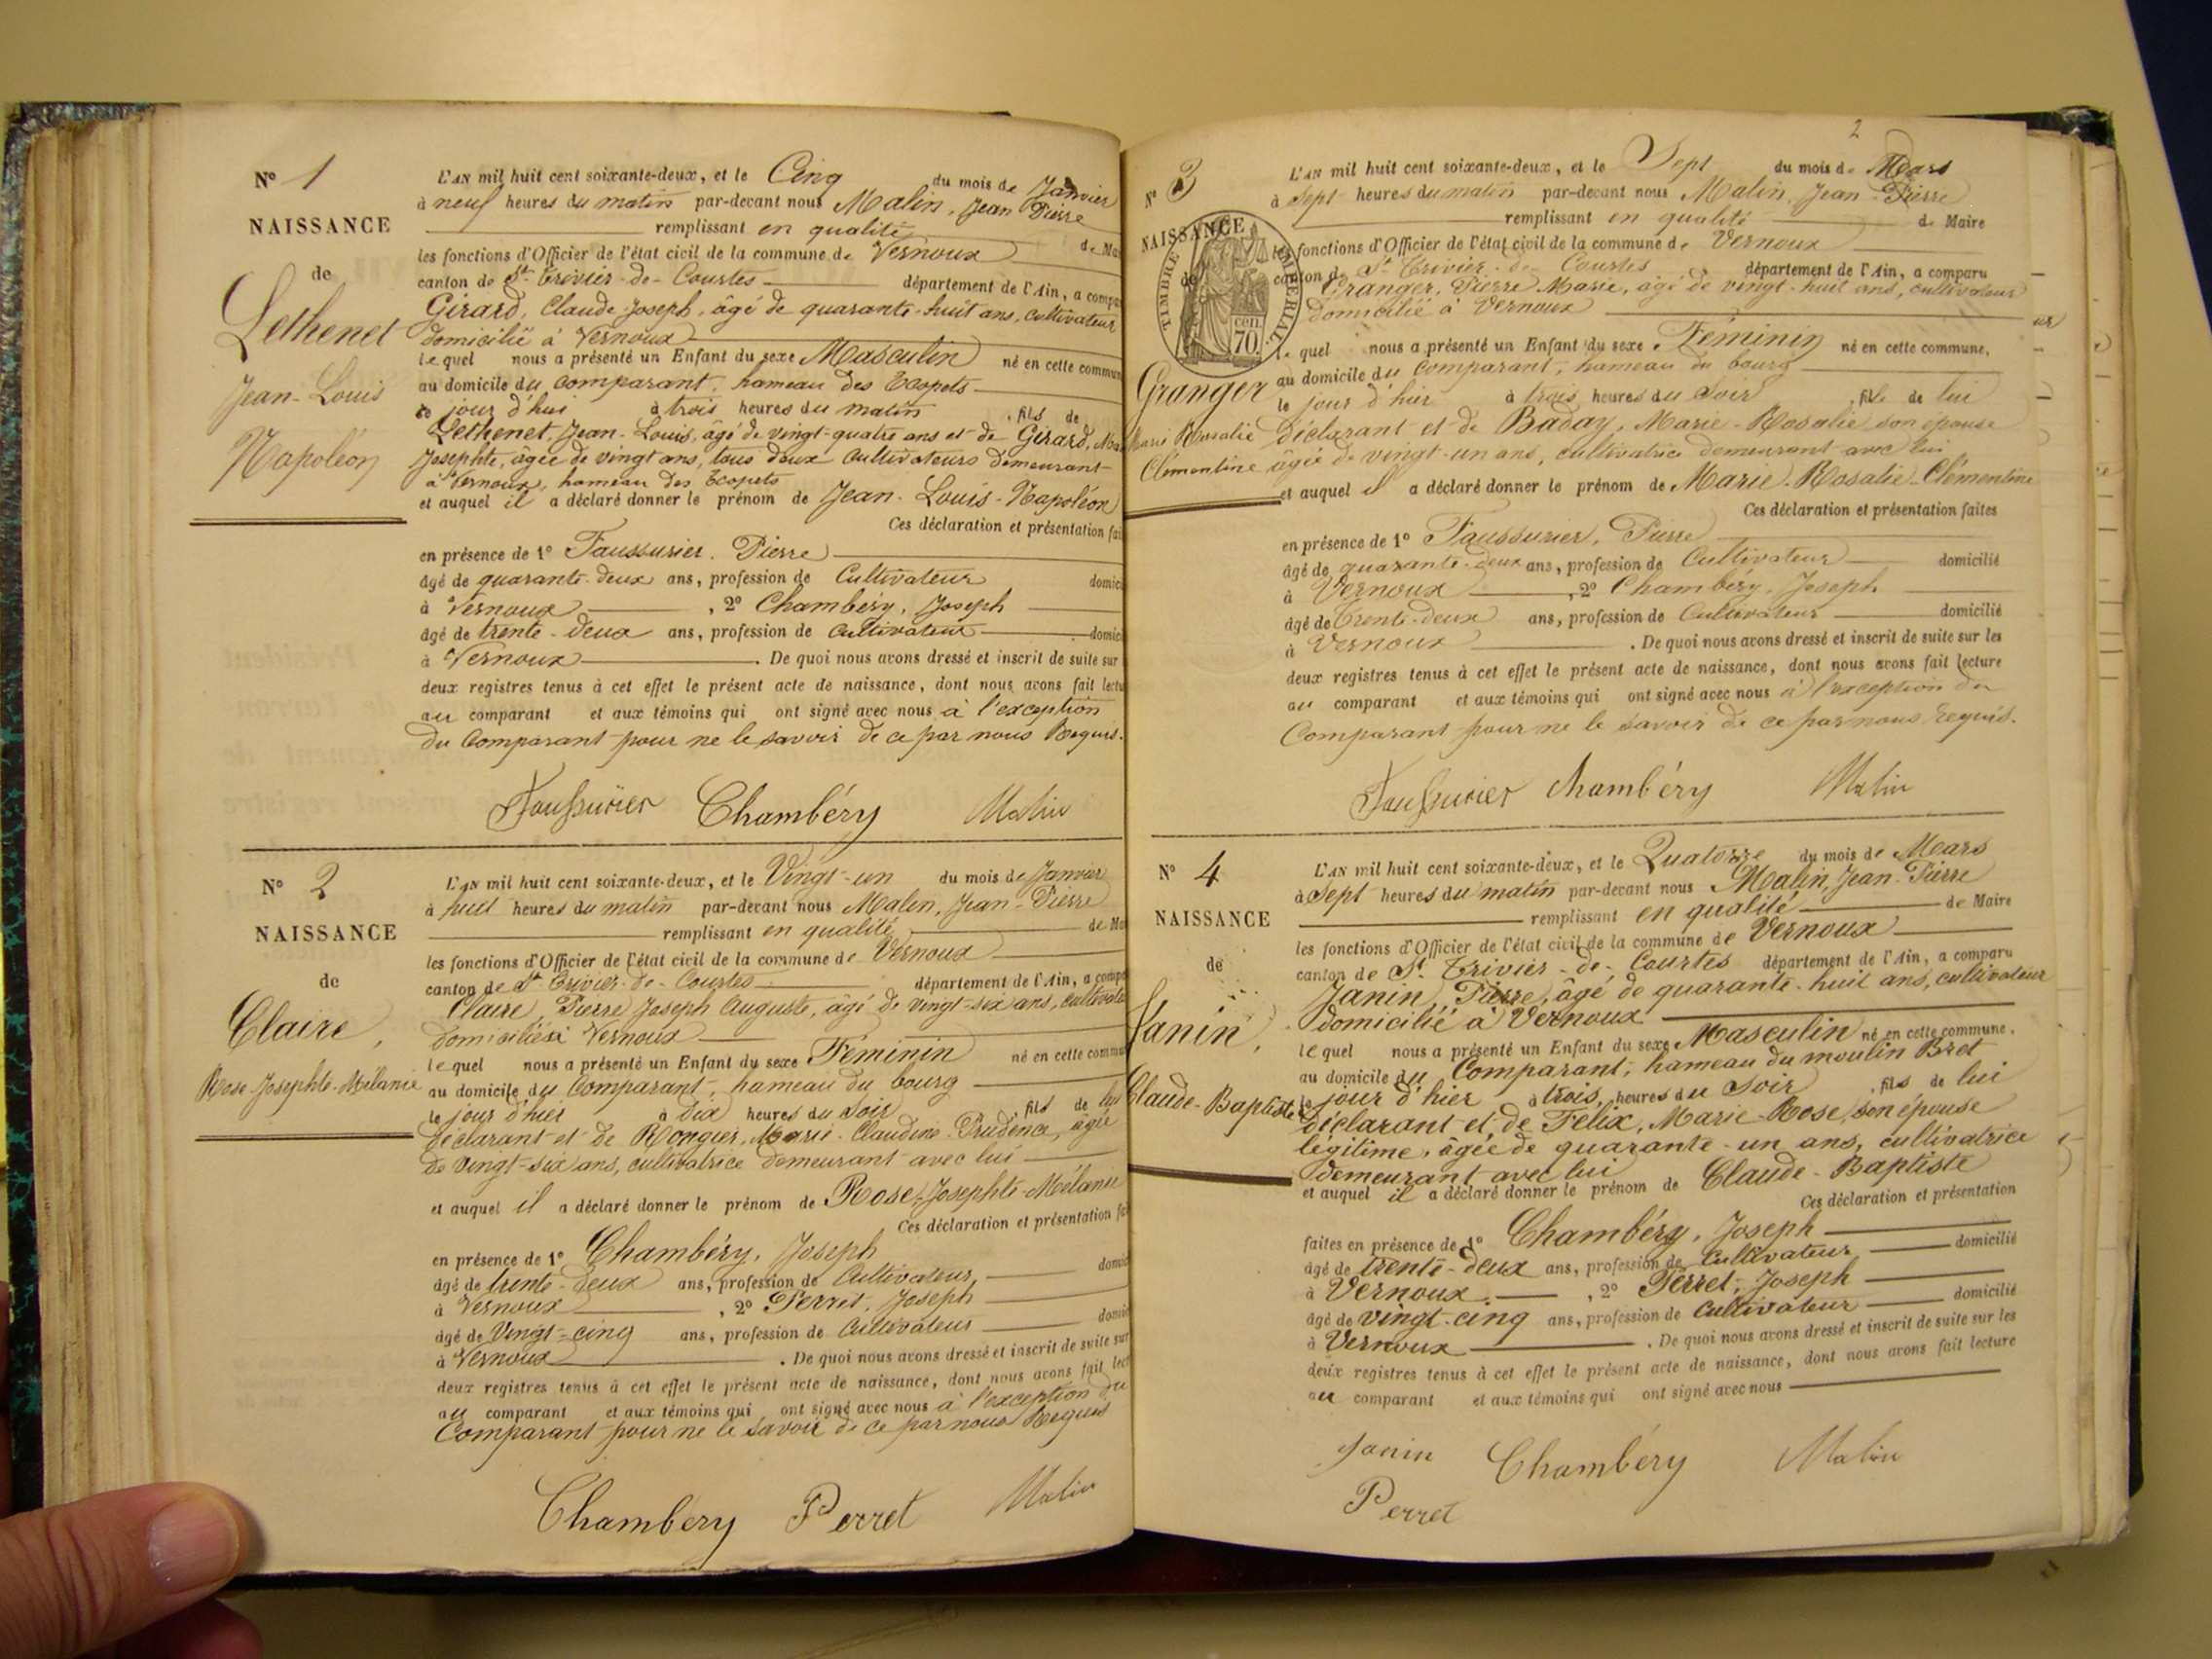 N° 1
NAISSANCE
de
Lethenet
Jean-Louis
Napoléon
L'AN mil huit cent soixante-deux, et le Cinq du mois de Janvier
à neuf heures du matin par-devant nous Malin, Jean Pierre
remplissant en qualité de Mai
les fonctions d'Officier de l'état civil de la commune de Vernoux
canton de St Trivier-de-Courtes département de l'Ain, a compa
Girard, Claude Joseph, âgé de quarante-huit ans, cultivateur
domicilié à Vernoux
lequel nous a présenté un Enfant du sexe Masculin né en cette commun
au domicile du comparant, hameau des Ecopets
le jour d'hui à trois heures du matin, fils de
Lethenet, Jean-Louis, âgé de vingt-quatre ans et de Girard, Ma
Josephte, agée de vingt ans, tous deux cultivateurs demeurant
à Vernoux, hameau des Ecopets
et auquel il a déclaré donner le prénom de Jean-Louis-Napoléon
Ces déclaration et présentation fai
en présence de 1° Faussurier, Pierre
âgé de quarante-deux ans, profession de Cultivateur domici
à Vernoux, 2° Chambéry, Joseph
âgé de trente-deux ans, profession de Cultivateur domici
à Vernoux. De quoi nous avons dressé et inscrit de suite sur
deux registres tenus à cet effet le présent acte de naissance, dont nous avons fait lectu
au comparant et aux témoins qui ont signé avec nous à l'exception
du Comparant pour ne le savoir de ce par nous Requis.
Faussurier Chambéry Malin
N° 2
NAISSANCE
de
Claire,
Rose-Josephte-Mélanie
L'AN mil huit cent soixante-deux, et le Vingt-un du mois de Janvier
à huit heures du matin par-devant nous Malin, Jean-Pierre
remplissant en qualité de Ma
les fonctions d'Officier de l'état civil de la commune de Vernoux
canton de St Trivier-de-Courtes département de l'Ain, a compa
Claire, Pierre Joseph Auguste, âgé de vingt-six ans, cultivate
domicilié à Vernoux
lequel nous a présenté un Enfant du sexe Féminin né en cette commu
au domicile du Comparant, hameau du bourg
le jour d'hier à dix heures du soir, fils de lui
déclarant et de Rongier, Marie-Claudine-Prudence, agée
de vingt-six ans, cultivatrice demeurant avec lui
et auquel il a déclaré donner le prénom de Rose-Josephte-Mélanie
Ces déclaration et présentation fa
en présence de 1° Chambéry, Joseph
âgé de trente-deux ans, profession de Cultivateur, domic
à Vernoux, 2° Perret, Joseph
âgé de Vingt-cinq ans, profession de Cultivateur domic
à Vernoux. De quoi nous avons dressé et inscrit de suite sur
deux registres tenus à cet effet le présent acte de naissance, dont nous avons fait lect
au comparant et aux témoins qui ont signé avec nous à l'exception du
Comparant pour ne le savoir de ce par nous Requis
Chambery Perret Malin
2
N° 3
NAISSANCE
de
TIMBRE IMPÉRIAL
70 cen.
Granger
Marie Rosalie
Clémentine
L'AN mil huit cent soixante-deux, et le Sept du mois de Mars
à Sept heures du matin par-devant nous Malin, Jean-Pierre
remplissant en qualité de Maire
les fonctions d'Officier de l'état civil de la commune de Vernoux
canton de St Trivier-de-Courtes département de l'Ain, a comparu
Granger, Pierre Marie, âgé de vingt-huit ans, cultivateur
domicilié à Vernoux
Lequel nous a présenté un Enfant du sexe Féminin né en cette commune,
au domicile du Comparant, hameau du bourg
le jour d'hier à trois heures du Soir, fils de lui
déclarant et de Baday, Marie-Rosalie son épouse
âgée de vingt-un ans, cultivatrice demeurant avec lui
et auquel il a déclaré donner le prénom de Marie-Rosalie-Clémentine
Ces déclaration et présentation faites
en présence de 1° Faussurier, Pierre
âgé de quarante-deux ans, profession de Cultivateur domicilié
à Vernoux, 2° Chambéry, Joseph
âgé de Trente-deux ans, profession de Cultivateur domicilié
à Vernoux. De quoi nous avons dressé et inscrit de suite sur les
deux registres tenus à cet effet le présent acte de naissance, dont nous avons fait lecture
au comparant et aux témoins qui ont signé avec nous à l'exception du
Comparant pour ne le savoir de ce par nous requis.
Faussurier Chambéry Malin
N° 4
NAISSANCE
de
Janin,
Claude-Baptiste
L'AN mil huit cent soixante-deux, et le Quatorze du mois de Mars
à Sept heures du matin par-devant nous Malin, Jean-Pierre
remplissant en qualité de Maire
les fonctions d'Officier de l'état civil de la commune de Vernoux
canton de St Trivier-de-Courtes département de l'Ain, a comparu
Janin, Pierre, âgé de quarante-huit ans, cultivateur
domicilié à Vernoux
lequel nous a présenté un Enfant du sexe Masculin né en cette commune,
au domicile du Comparant, hameau du moulin Bret
le jour d'hier à trois, heures du Soir, fils de lui
déclarant et de Felix, Marie-Rose, son épouse
légitime, âgée de quarante-un ans, cultivatrice
demeurant avec lui
et auquel il a déclaré donner le prénom de Claude-Baptiste
Ces déclaration et présentation
faites en présence de 1° Chambéry, Joseph
âgé de trente-deux ans, profession de Cultivateur domicilié
à Vernoux, 2° Perret, Joseph
âgé de vingt-cinq ans, profession de cultivateur domicilié
à Vernoux. De quoi nous avons dressé et inscrit de suite sur les
deux registres tenus à cet effet le présent acte de naissance, dont nous avons fait lecture
au comparant et aux témoins qui ont signé avec nous
Janin Chambéry Malin
Perret